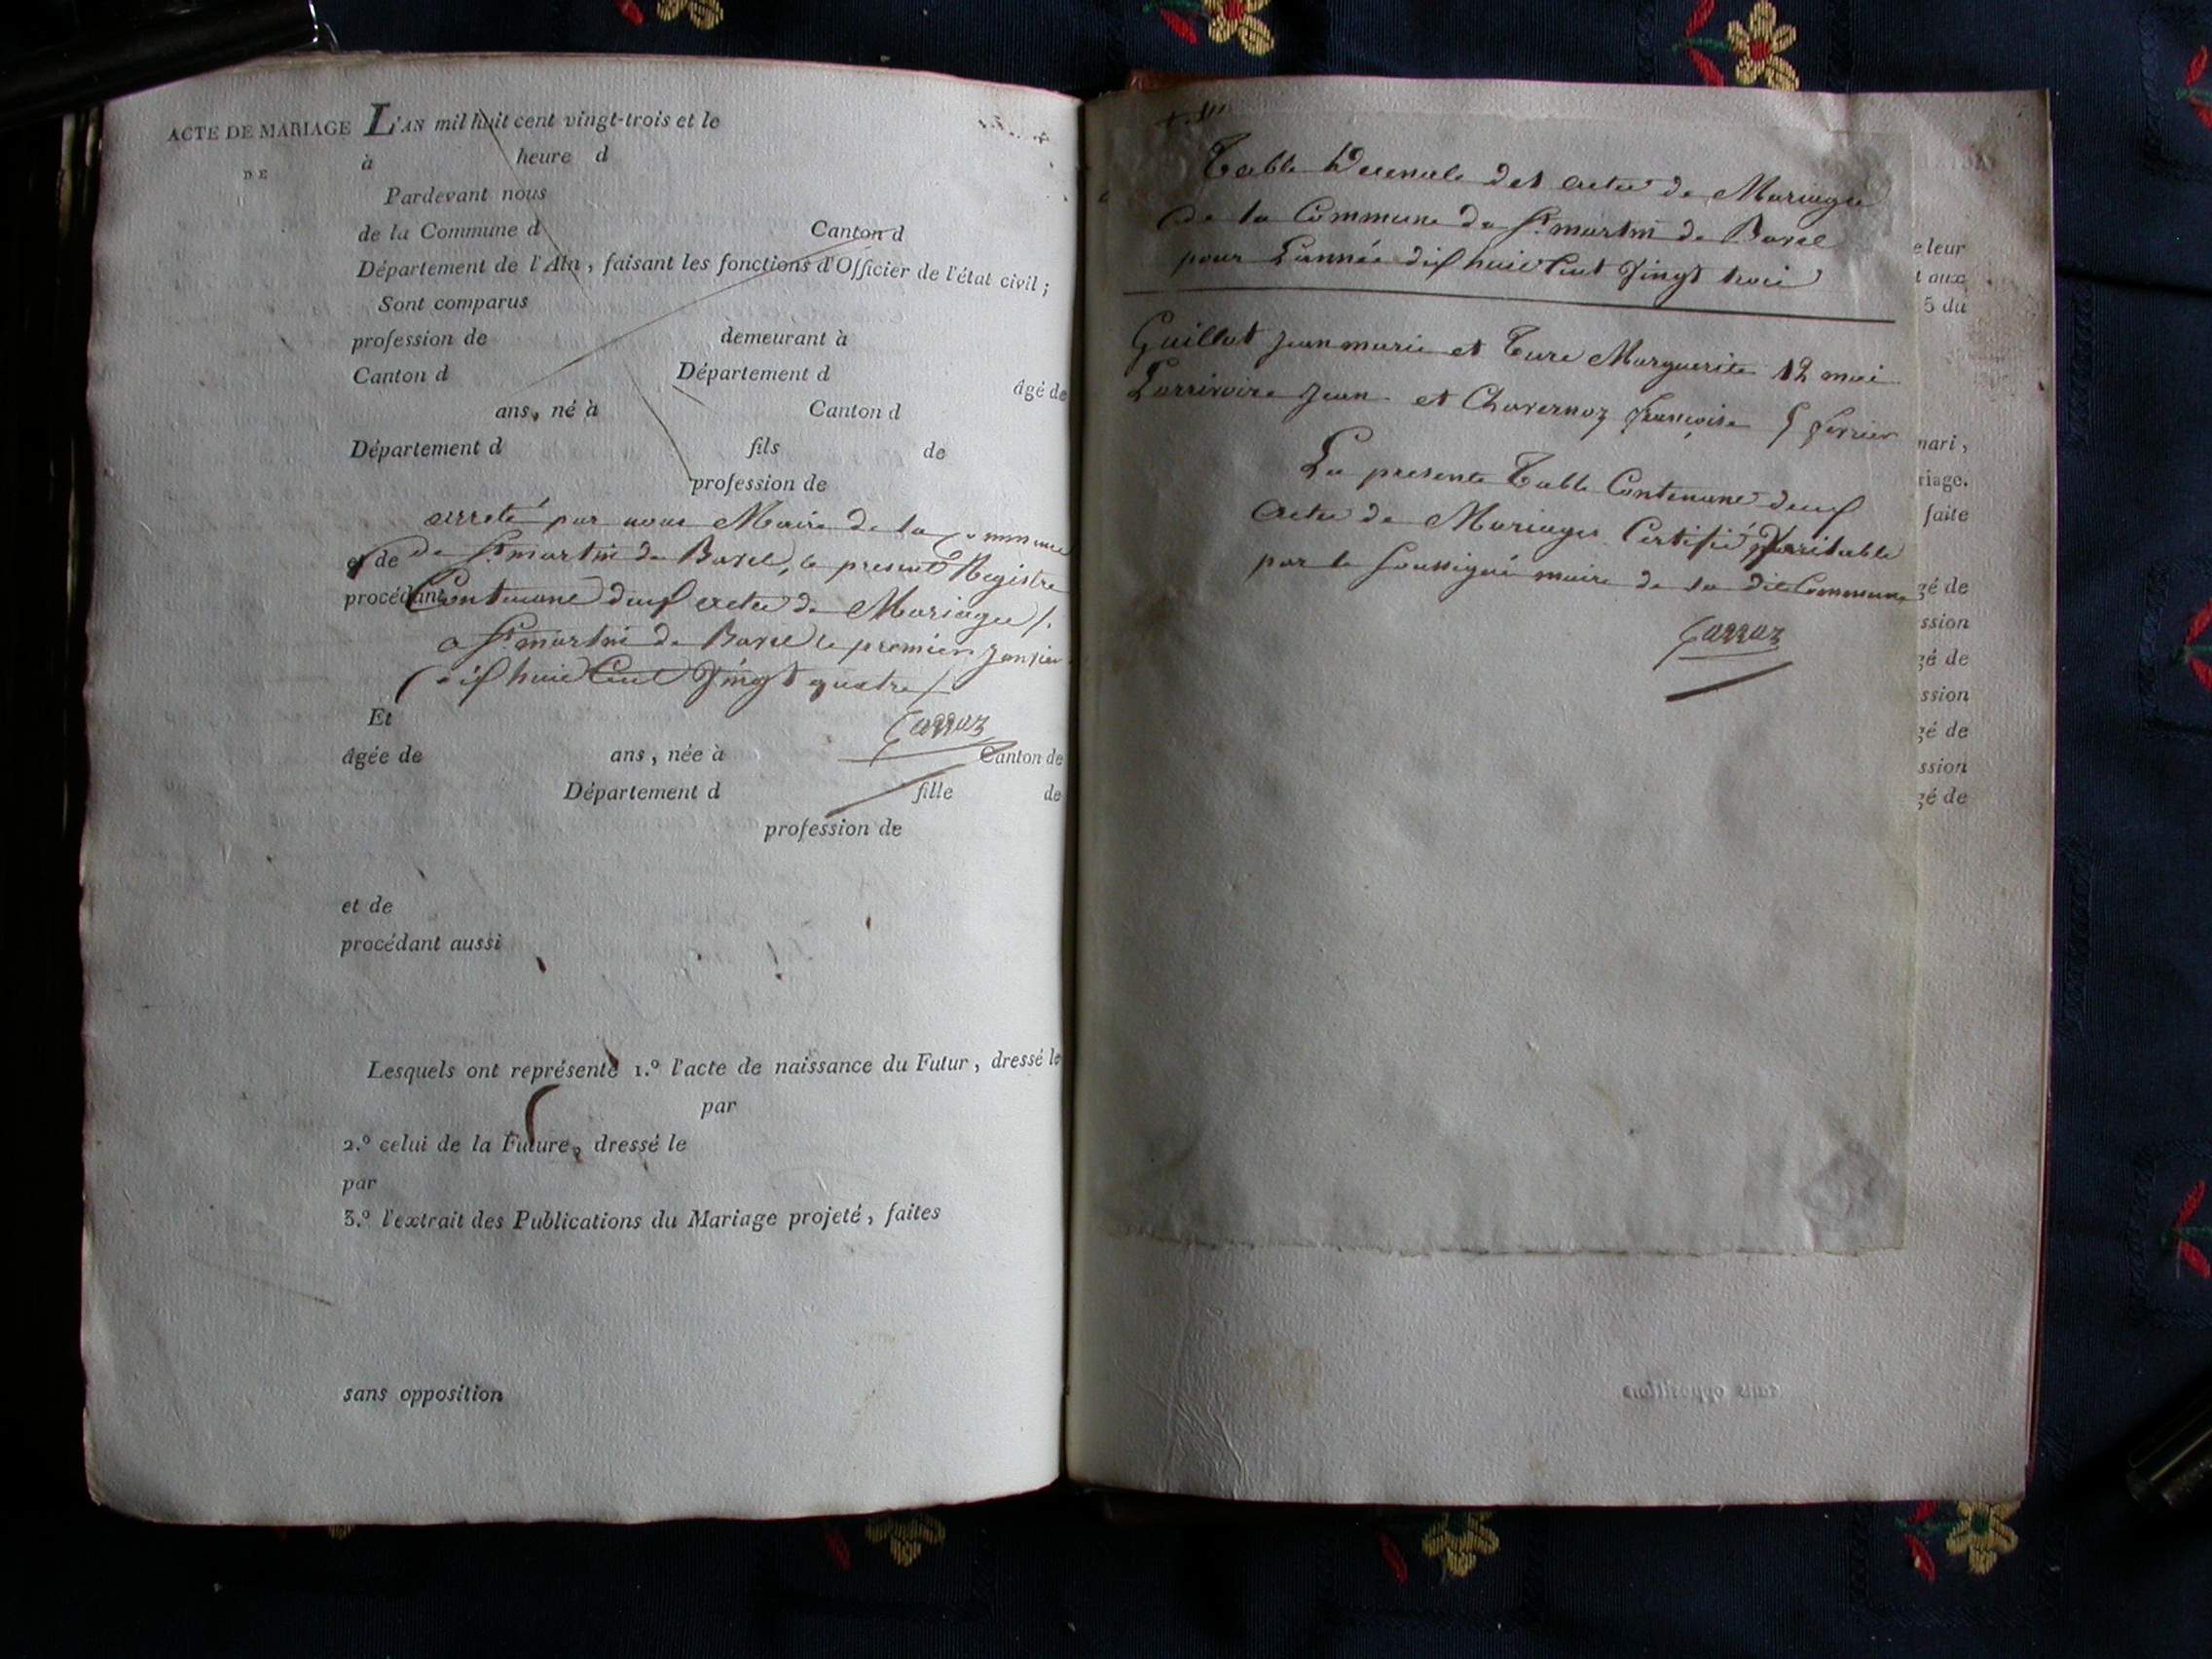 ACTE DE MARIAGE
DE
L'AN mil huit cent vingt-trois et le
à heure d
Pardevant nous
de la Commune d Canton d
Département de l'Ain, faisant les fonctions d'Officier de l'état civil;
Sont comparus
profession de demeurant à
Canton d Département d âgé de
ans, né à Canton d
Département d fils de
profession de
arreté par nous Maire de la Commune
et de de St martin de Bavel, le present Registre
procédant Contenant deux actes de Mariages /.
a St martin de Bavel le premier janvier
dix huit Cent Vingt quatre /.
Et
âgée de ans, née à Canton de
Département d fille de
profession de
et de
procédant aussi
Lesquels ont représenté 1.º l'acte de naissance du Futur, dressé le
par
2.º celui de la Future, dressé le
par
3.º l'extrait des Publications du Mariage projeté, faites
sans opposition
Table Decenale des actes de Mariages
de la Commune de St martin de Bavel
pour L'année dix huit Cent Vingt trois
Guillot jean marie et Ture Marguerite 12 mai
Larrivoire jean et Chavernoz françoise 5 fevrier
La presente Table Contenant deux
actes de Mariages Certifié Veritable
par le Soussigné maire de la dite Commune
e leur
t aux
5 du
mari,
riage.
faite
gé de
ssion
gé de
ssion
gé de
ssion
gé de